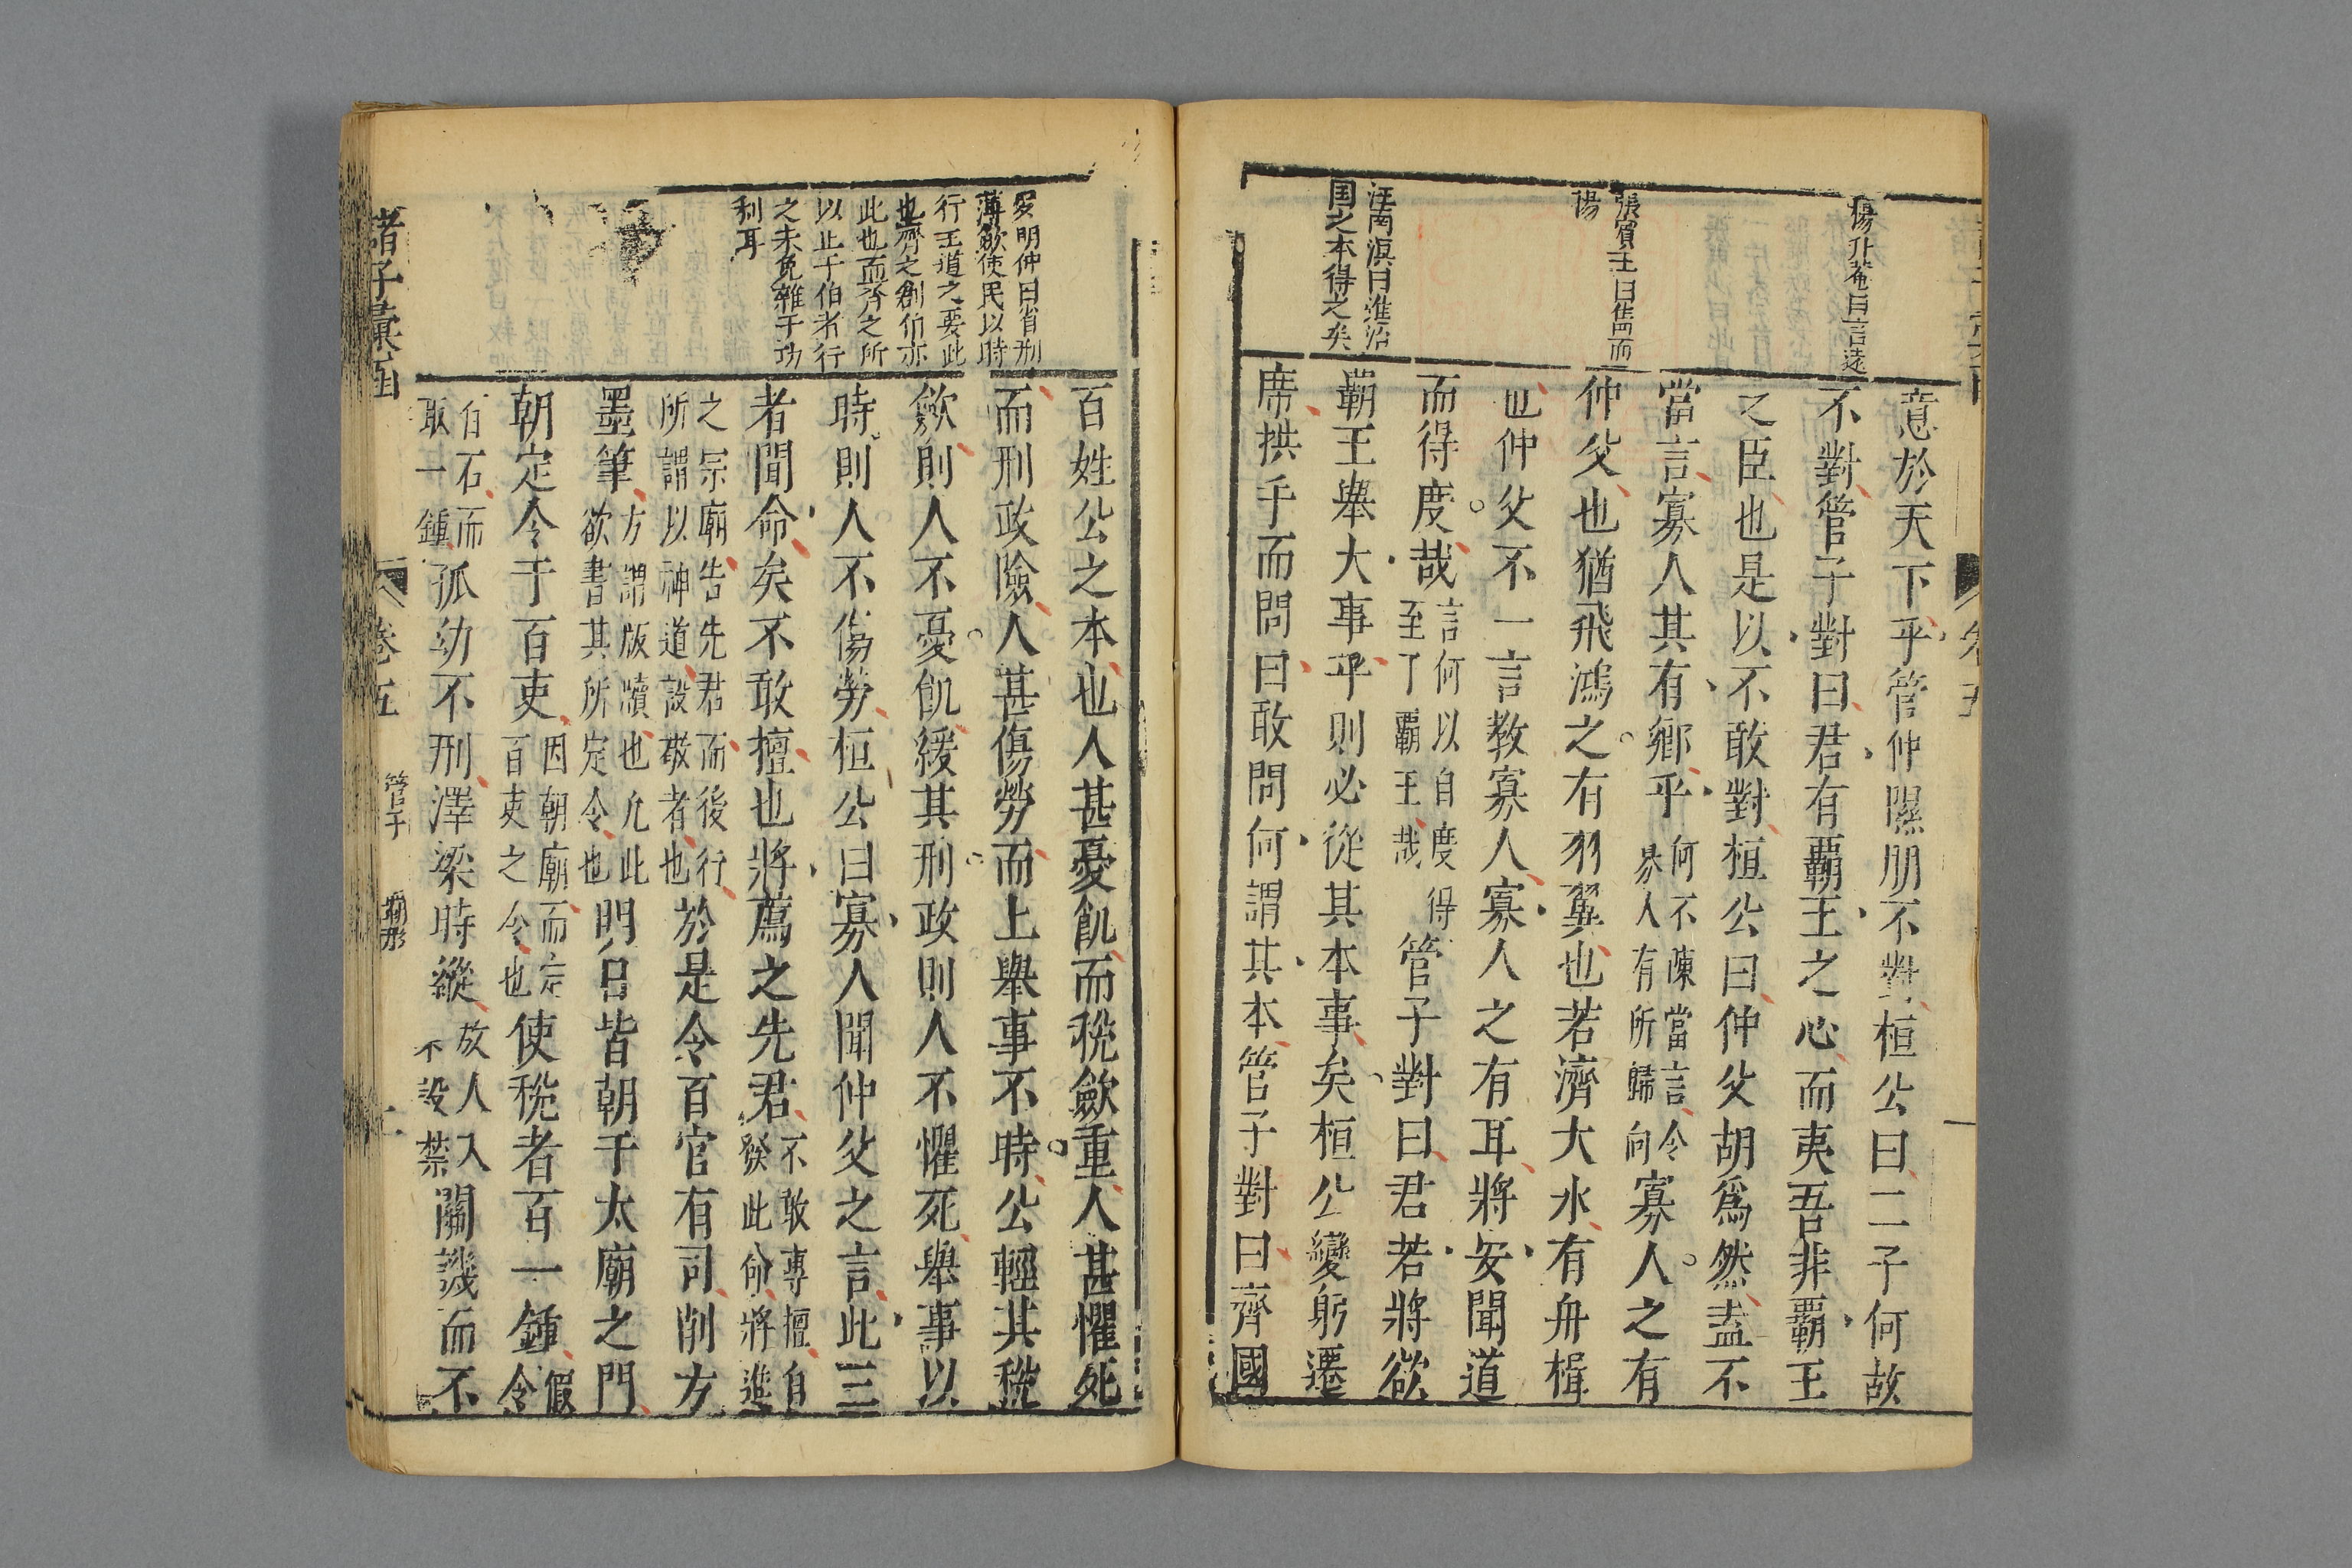 楊升菴曰言遠
張賓王曰雋而
揚
汪南溟曰進治
国之本得之矣
意於天下乎管仲隰朋不對桓公曰二子何故
不對管子對曰君有霸王之心而夷吾非霸王
之臣也是以不敢對桓公曰仲父胡爲然盍不
當言寡人其有鄉乎何不陳當言令寡人有所歸向寡人之有
仲父也猶飛鴻之有羽翼也若濟大水有舟楫
也仲父不一言教寡人寡人之有耳將安聞道
而得度哉言何以自度得至了霸王哉管子對曰君若將欲
霸王舉大事乎則必從其本事矣桓公變躬遷
席拱手而問曰敢問何謂其本管子對曰齊國
卷五
明仲曰省刑
薄斂使民以時
行王道之要此
也齊之創伯亦
此也而齊之所
以止于伯者行
之未免雜于功
利耳
百姓公之本也人甚憂飢而稅斂重人甚懼死
而刑政險人甚傷勞而上舉事不時公輕其稅
斂則人不憂飢緩其刑政則人不懼死舉事以
時則人不傷勞桓公曰寡人聞仲父之言此三
者聞命矣不敢擅也將薦之先君不敢專擅自發此命將進
之宗廟告先君而後行所謂以神道設敬者也於是令百官有司削方
墨筆方謂版牘也允此欲書其所定令也明日皆朝于太廟之門
朝定令于百吏因朝廟而定百吏之令也使稅者百一鍾假令
百石而取一鍾孤幼不刑澤梁時縱放人入不設禁關譏而不
諸子彙函
卷五
管子
霸形